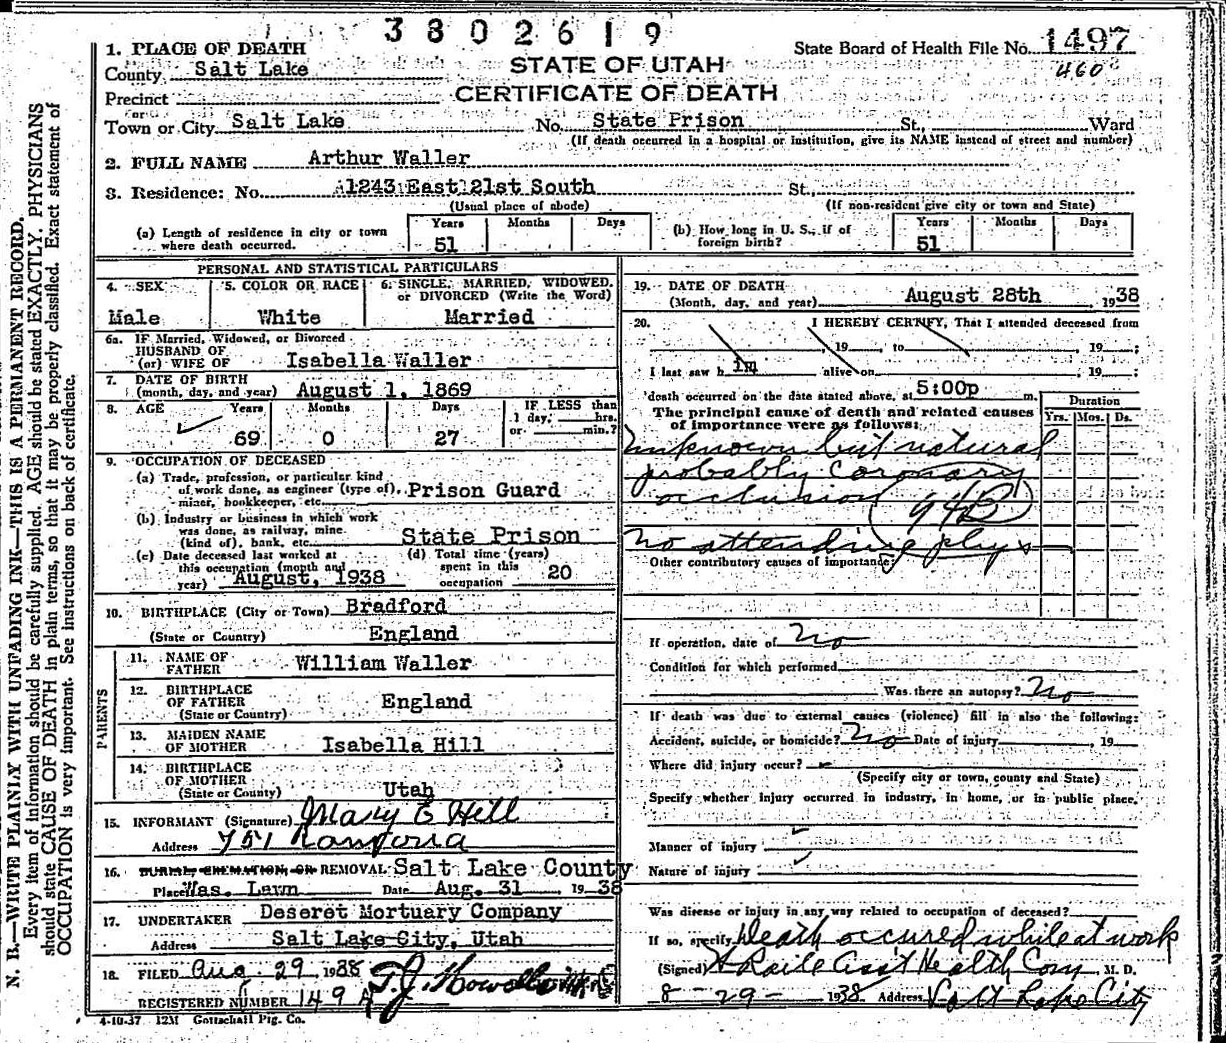 3802619
1. PLACE OF DEATH
State Board of Health File No. 1497
460
County Salt Lake
STATE OF UTAH
CERTIFICATE OF DEATH
Precinct
or
Town or City Salt Lake No. State Prison St., Ward
(If death occurred in a hospital or institution, give its NAME instead of street and number)
2. FULL NAME Arthur Waller
3. Residence: No. 1243 East 21st South St.,
(Usual place of abode) (If non-resident give city or town and State)
(a) Length of residence in city or town where death occurred. Years 51 Months Days
(b) How long in U. S., if of foreign birth? Years 51 Months Days
PERSONAL AND STATISTICAL PARTICULARS
4. SEX 5. COLOR OR RACE 6. SINGLE, MARRIED, WIDOWED, or DIVORCED (Write the Word)
Male White Married
6a. IF Married, Widowed, or Divorced
HUSBAND OF
(or) WIFE OF Isabella Waller
7. DATE OF BIRTH
(month, day, and year) August 1, 1869
8. AGE Years Months Days IF LESS than
1 day, hrs.
69 0 27 or min.?
9. OCCUPATION OF DECEASED
(a) Trade, profession, or particular kind
of work done, as engineer (type of), Prison Guard
miner, bookkeeper, etc.
(b) Industry or business in which work
was done, as railway, mine
(kind of), bank, etc. State Prison
(c) Date deceased last worked at this occupation (month and year) August, 1938
(d) Total time (years) spent in this occupation 20
10. BIRTHPLACE (City or Town) Bradford
(State or Country) England
PARENTS
11. NAME OF FATHER William Waller
12. BIRTHPLACE OF FATHER
(State or Country) England
13. MAIDEN NAME OF MOTHER Isabella Hill
14. BIRTHPLACE OF MOTHER
(State or Country) Utah
15. INFORMANT (Signature) Mary E Hill
Address 751
16. BURIAL, CREMATION, OR REMOVAL Salt Lake County
Place Was. Lawn Date Aug. 31 1938
17. UNDERTAKER Deseret Mortuary Company
Address Salt Lake City, Utah
18. FILED Aug. 29 1938
REGISTERED NUMBER 149
4-10-37 12M Gottschall Ptg. Co.
19. DATE OF DEATH
(Month, day, and year) August 28th 1938
20. I HEREBY CERTIFY, That I attended deceased from
, 19 to , 19 ;
I last saw him alive on , 19 ;
death occurred on the date stated above, at 5:00p m.
The principal cause of death and related causes
of importance were as follows:
Duration
Yrs. Mos. Ds.
Unknown but natural
probably coronary
occlusion 94B
No attending phys
Other contributory causes of importance:
If operation, date of No
Condition for which performed
Was there an autopsy? No
If death was due to external causes (violence) fill in also the following:
Accident, suicide, or homicide? No Date of injury , 19
Where did injury occur?
(Specify city or town, county and State)
Specify whether injury occurred in industry, in home, or in public place.
Manner of injury
Nature of injury
Was disease or injury in any way related to occupation of deceased?
If so, specify Death occured while at work
(Signed) Asst Health Com M. D.
8-29- 1938 Address Salt Lake City
N. B.—WRITE PLAINLY WITH UNFADING INK—THIS IS A PERMANENT RECORD.
Every item of information should be carefully supplied. AGE should be stated EXACTLY. PHYSICIANS
should state CAUSE OF DEATH in plain terms, so that it may be properly classified. Exact statement of
OCCUPATION is very important. See instructions on back of certificate.